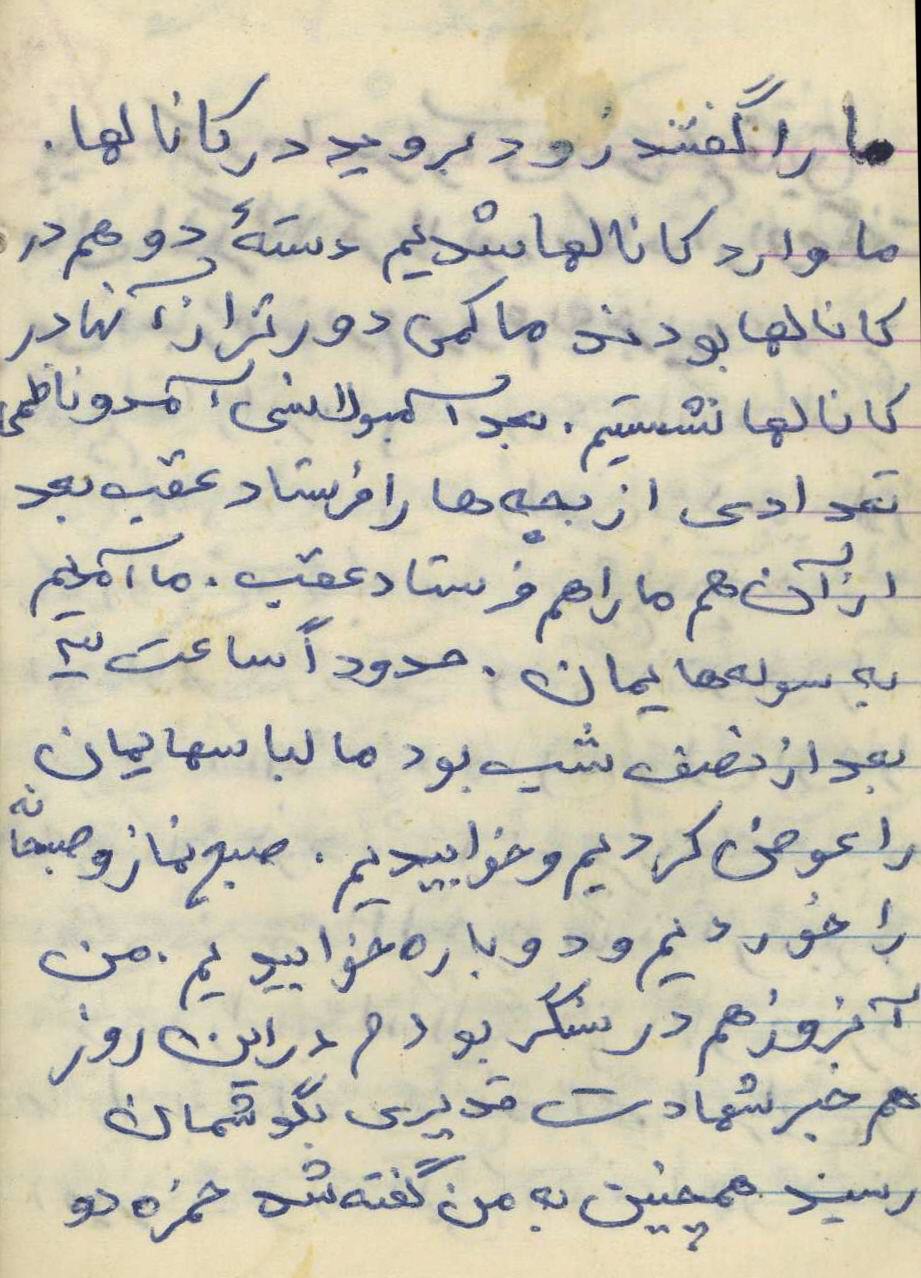 ما را گفتند زود بروید در کانالها.
ما وارد کانالها شدیم دستهٔ دو هم در
کانالها بودند ما کمی دورتر از آنها در
کانالها نشستیم. بعد آمبولانسی آمد و ناظمی
تعدادی از بچه ها را فرستاد عقب بعد
از آن هم ما را هم فرستاد عقب. ما آمدیم
به سوله هایمان. حدوداً ساعت
بعد از نصف شب بود ما لباسهایمان
را عوض کردیم و خوابیدیم. صبح نماز و صبحانه
را خوردیم و دوباره خوابیدیم. من
آنروز هم در سنگر بودم در این روز
هم خبر شهادت قدیری بگوشمان
رسید همچنین به من گفته شد حمزه دو